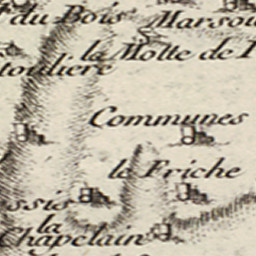 du Bois
Marsou
la Motte de
touliere
Communes
le Friche
ssis
la
Chapelain